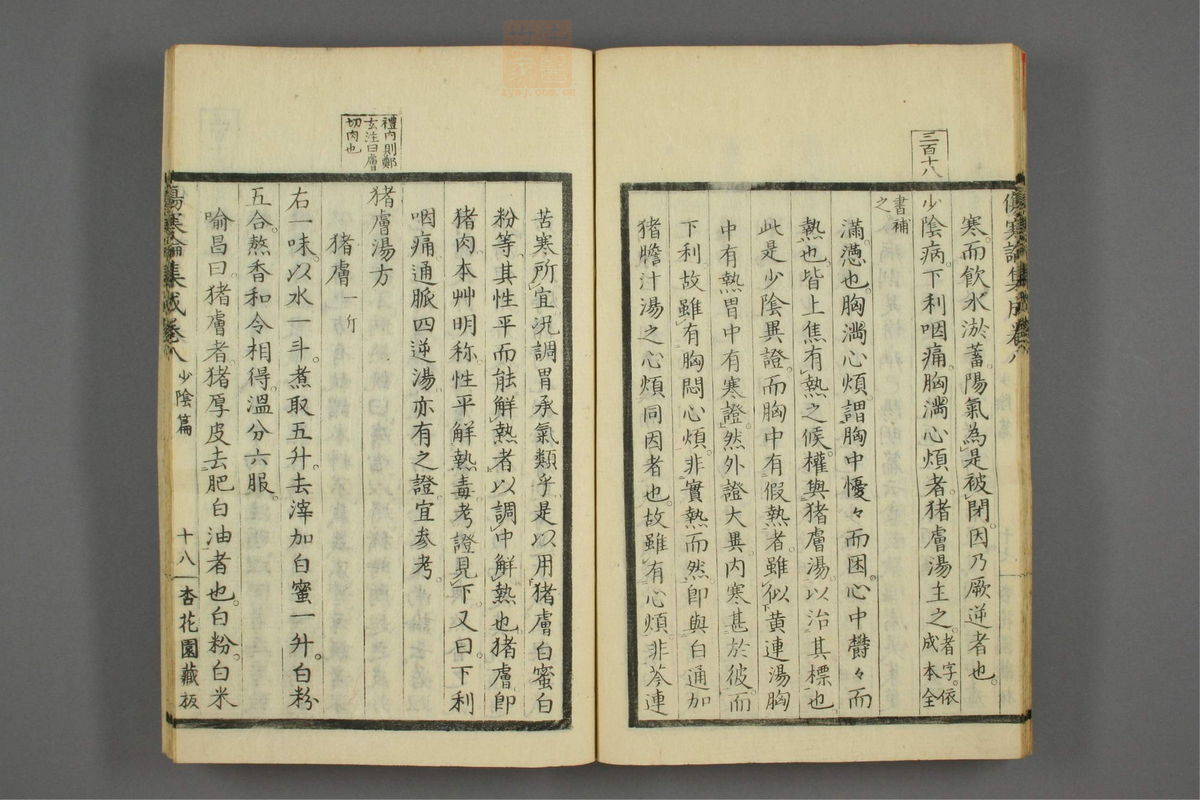 三百十八
傷寒論集成卷八
寒而飲水淤蓄陽氣為是被閉因乃厥逆者也
少陰病下利咽痛胸滿心煩者猪膚湯主之者字依成本全
書補之
滿懣也胸滿心煩謂胸中懮々而困心中欝々而
熱也皆上焦有熱之候權與猪膚湯以治其標也
此是少陰異證而胸中有假熱者雖似黄連湯胸
中有熱胃中有寒證然外證大異内寒甚於彼而
下利故雖有胸悶心煩非實熱而然即與白通加
猪膽汁湯之心煩同因者也故雖有心煩非芩連
禮内則鄭
玄注曰膚
切肉也
苦寒所宜况調胃承氣類乎是以用猪膚白蜜白
粉等其性平而能解熱者以調中解熱也猪膚即
猪肉本艸明称性平解熱毒考證見下又曰下利
咽痛通脈四逆湯亦有之證宜参考
猪膚湯方
猪膚一斤
右一味以水一斗煮取五升去滓加白蜜一升白粉
五合熬香和令相得溫分六服
喻昌曰猪膚者猪厚皮去肥白油者也白粉白米
傷寒論集成卷八 少陰篇 十八 杏花園藏板